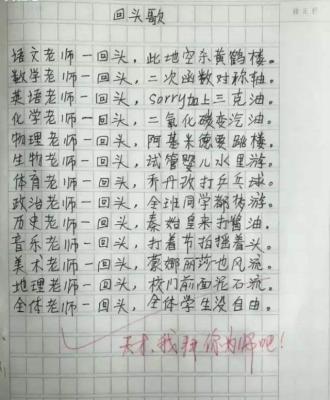 回头歌
语文老师一回头，此地空余黄鹤楼。
数学老师一回头，二次函数对称轴。
英语老师一回头，sorry加上三克油。
化学老师一回头，二氧化碳变汽油。
物理老师一回头，阿基米德要跳楼。
生物老师一回头，试管婴儿水里游。
体育老师一回头，乔丹改打乒乓球。
政治老师一回头，全班同学都梦游。
历史老师一回头，秦始皇来打酱油。
音乐老师一回头，打着节拍摇着头。
美术老师一回头，蒙娜丽莎也风流。
地理老师一回头，校门前面泥石流。
全体老师一回头，全体学生没自由。
天才，我拜你为师吧！